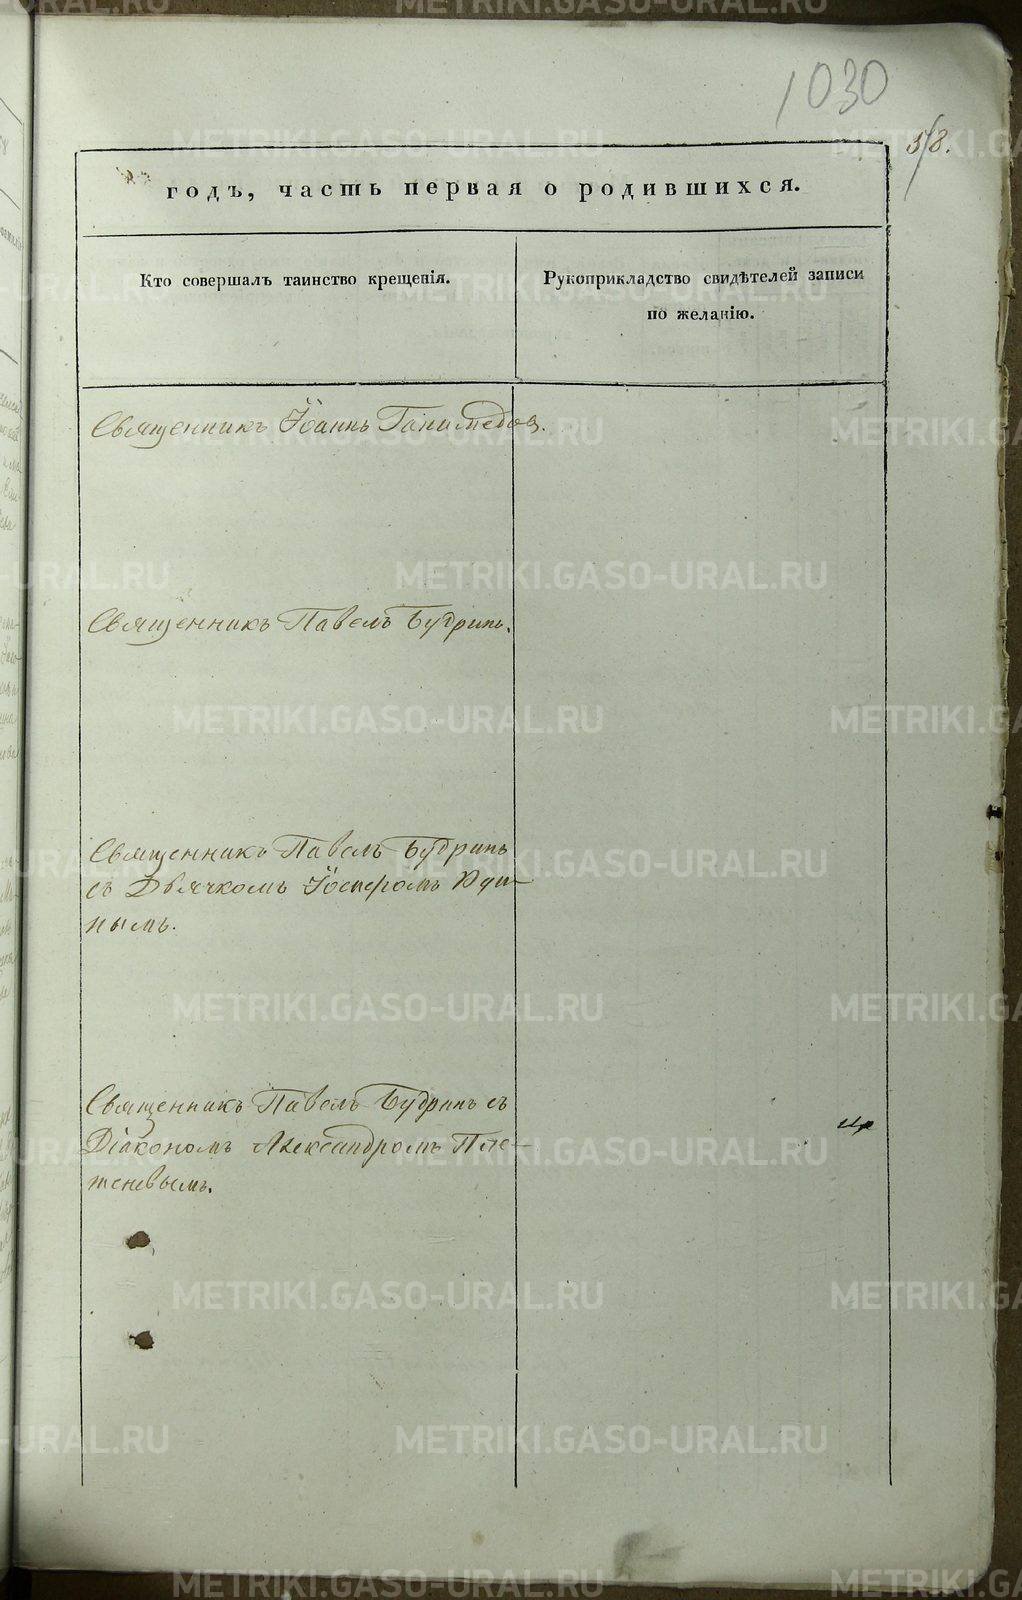 1030
58.
годъ, часть первая о родившихся.
Кто совершалъ таинство крещенія.
Рукоприкладство свидѣтелей записи
по желанію.
Священникъ Іоаннъ Ганимедов.
Священникъ Павелъ Будринъ.
Священникъ Павелъ Будринъ
съ Дьячкомъ Іосифомъ
нымъ.
Священникъ Павелъ Будринъ съ
Діакономъ Александромъ Пле-
теневымъ.
METRIKI.GASO-URAL.RU